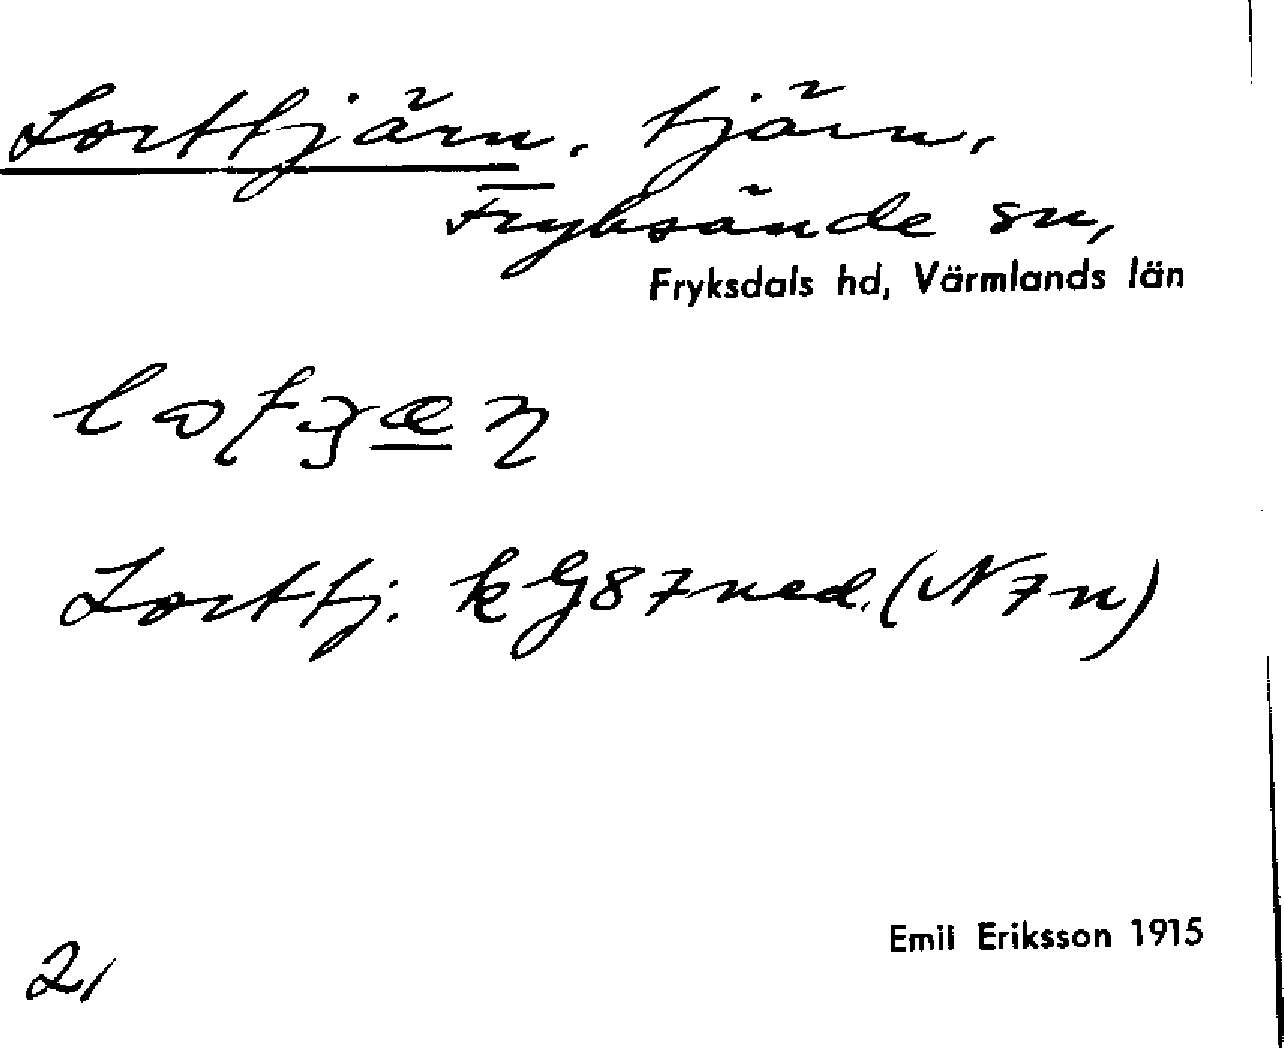 Lorttjärn. tjärn,
Fryksände sn,
Fryksdals hd, Värmlands län
Lorttj. kG87ned.(N7n)
Emil Eriksson 1915
2,